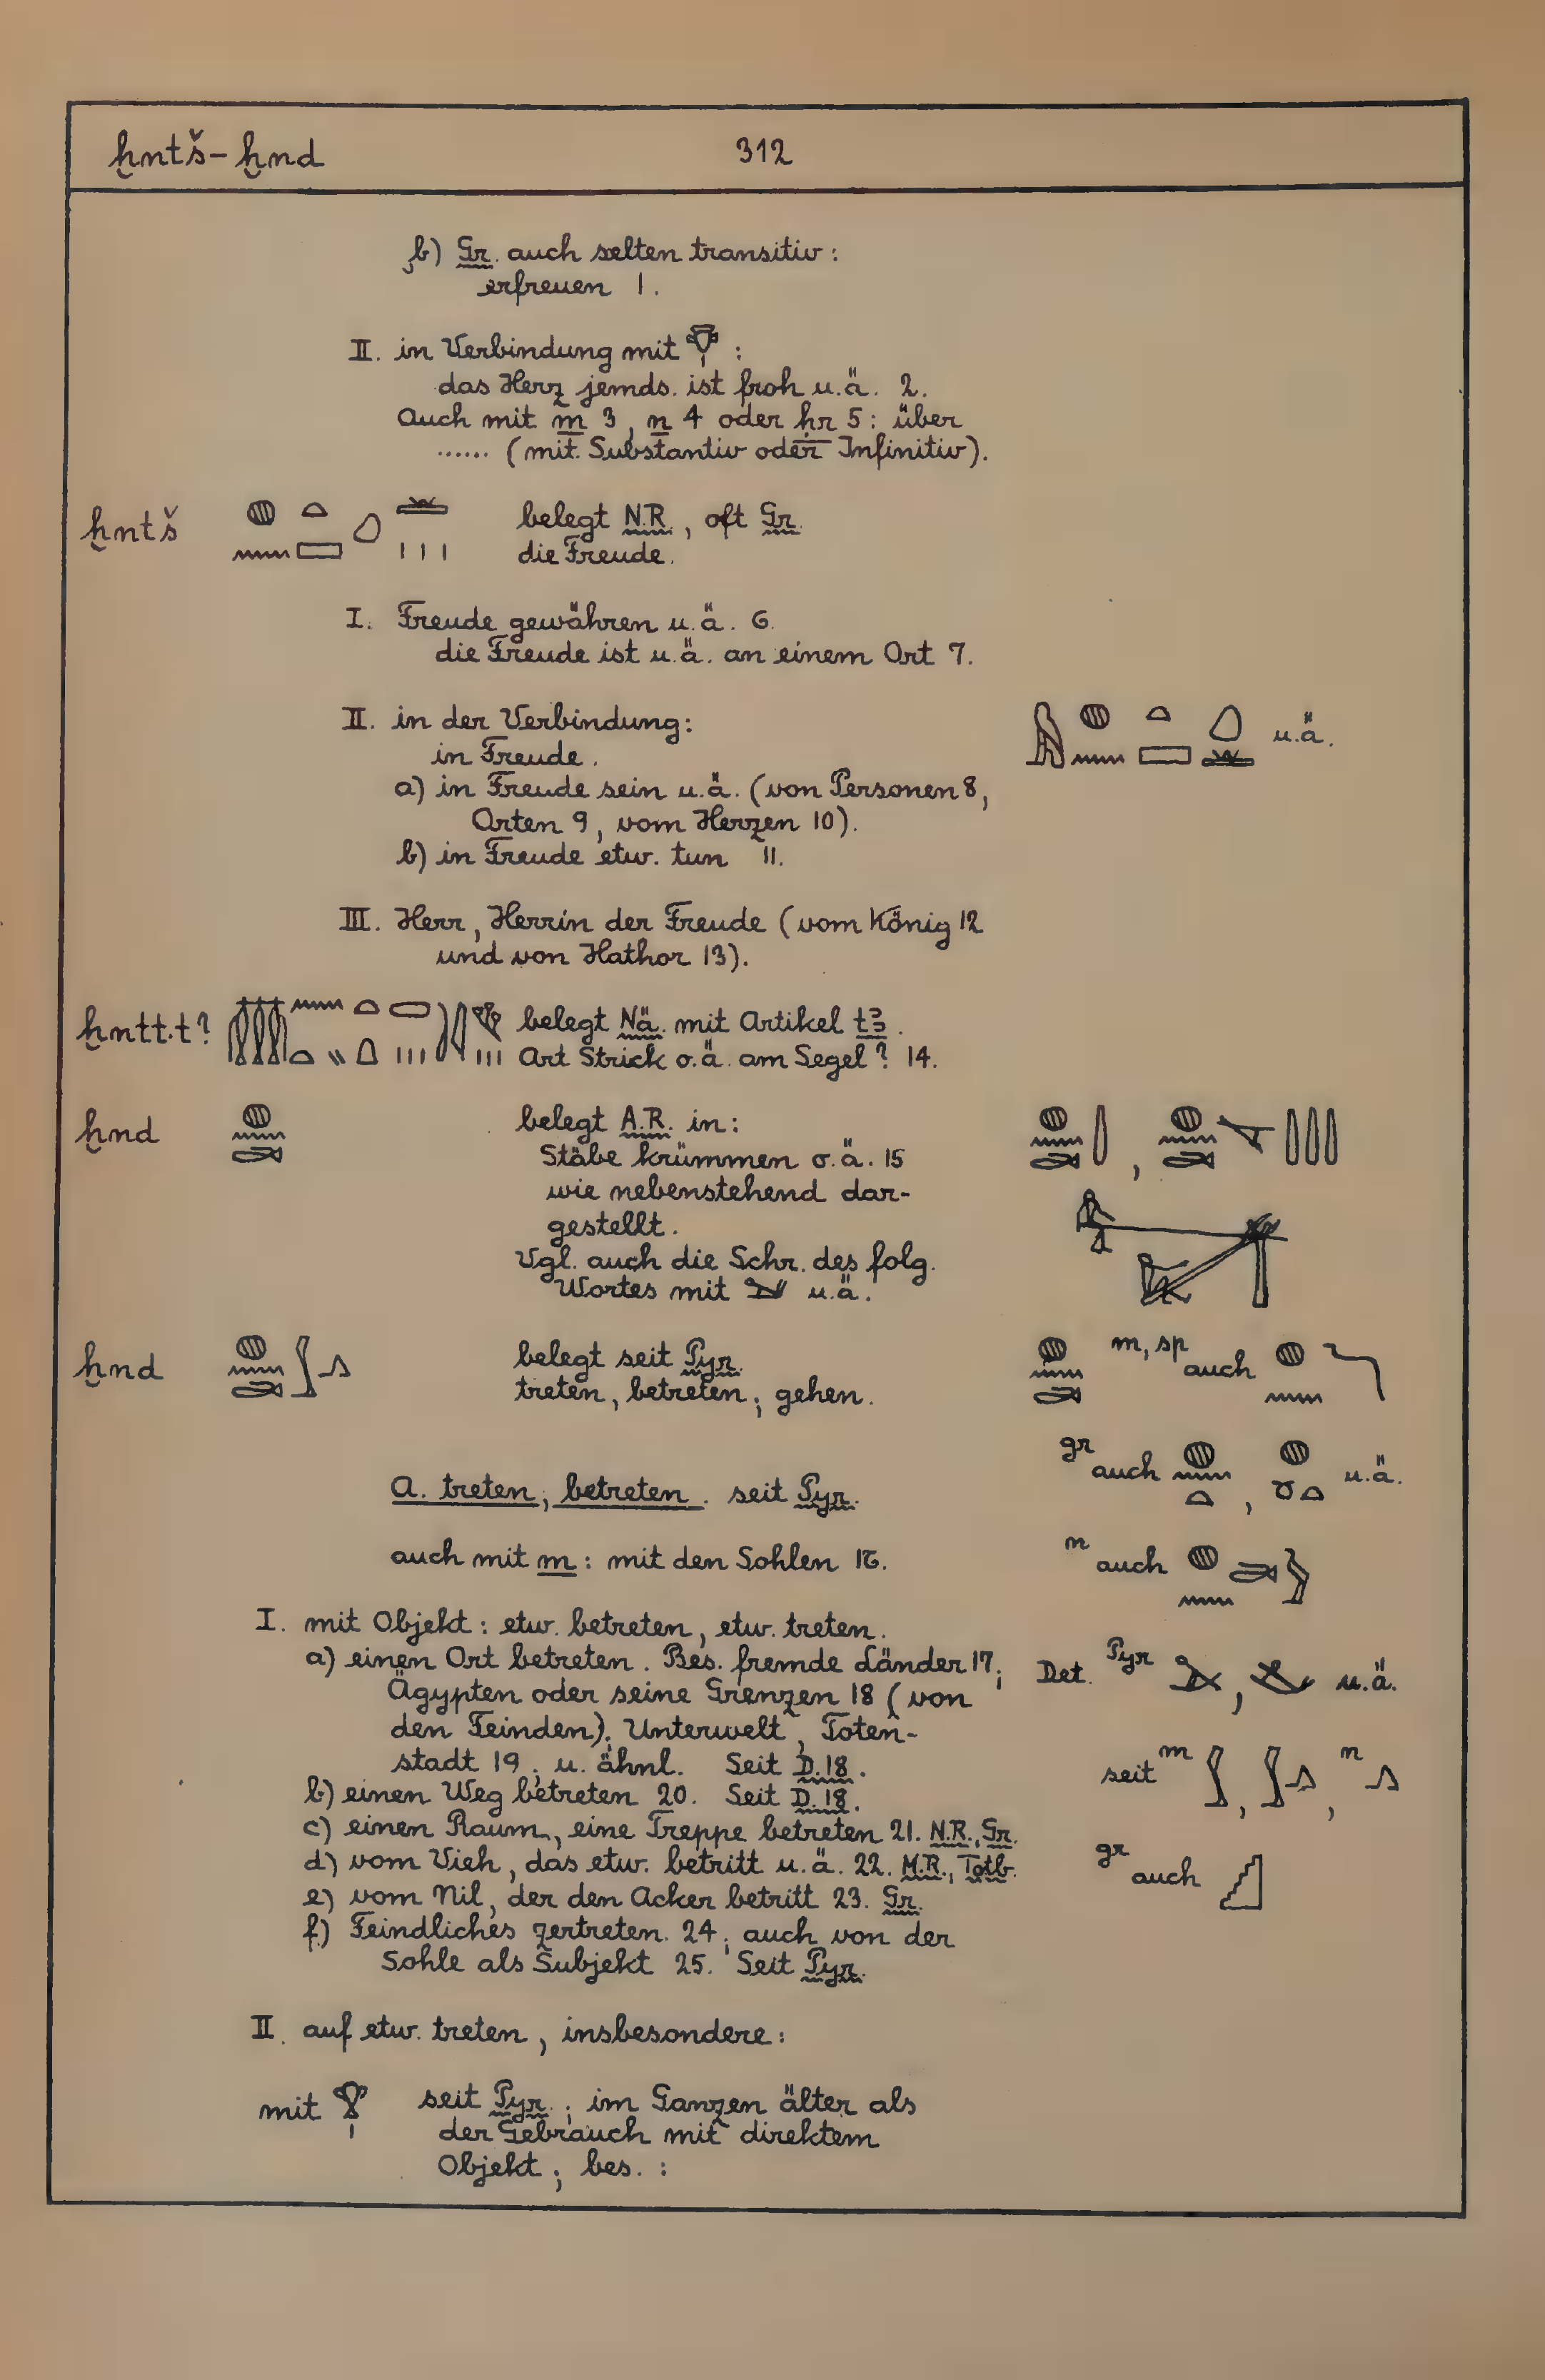 ḫntš - ḫnd 312
b) Gr. auch selten transitiv:
erfreuen 1.
II. in Verbindung mit 𓄣𓏤 :
das Herz jemds. ist froh u.ä. 2.
Auch mit m 3, n 4 oder ḥr 5: über
...... (mit Substantiv oder Infinitiv).
ḫntš belegt N.R., oft Gr.
die Freude.
I. Freude gewähren u.ä. 6.
die Freude ist u.ä. an einem Ort 7.
II. in der Verbindung: u.ä.
in Freude.
a) in Freude sein u.ä. (von Personen 8,
Orten 9, vom Herzen 10).
b) in Freude etw. tun 11.
III. Herr, Herrin der Freude (vom König 12
und von Hathor 13).
ḫntt.t? belegt Nä. mit Artikel tꜣ.
Art Strick o.ä. am Segel? 14.
ḫnd 𓐍𓈖𓆓 belegt A.R. in:
Stäbe krümmen o.ä. 15
wie nebenstehend dar-
gestellt.
Vgl. auch die Schr. des folg.
Wortes mit u.ä.
ḫnd belegt seit Pyr.
treten, betreten; gehen.
m, sp auch
gr auch , u.ä.
A. treten, betreten. seit Pyr.
auch mit m: mit den Sohlen 16.
n auch
I. mit Objekt: etw. betreten, etw. treten.
a) einen Ort betreten. Bes. fremde Länder 17;
Ägypten oder seine Grenzen 18 (von
den Feinden); Unterwelt, Toten-
stadt 19; u. ähnl. Seit D.18.
b) einen Weg betreten 20. Seit D.18.
c) einen Raum, eine Treppe betreten 21. N.R., Gr.
d) vom Vieh, das etw. betritt u.ä. 22. M.R., Totb.
e) vom Nil, der den Acker betritt 23. Gr.
f) Feindliches zertreten. 24; auch von der
Sohle als Subjekt 25. Seit Pyr.
Det. Pyr , u.ä.
seit m , , n
gr auch
II. auf etw. treten, insbesondere:
mit 𓁷𓏤 seit Pyr.; im Ganzen älter als
der Gebrauch mit direktem
Objekt; bes. :